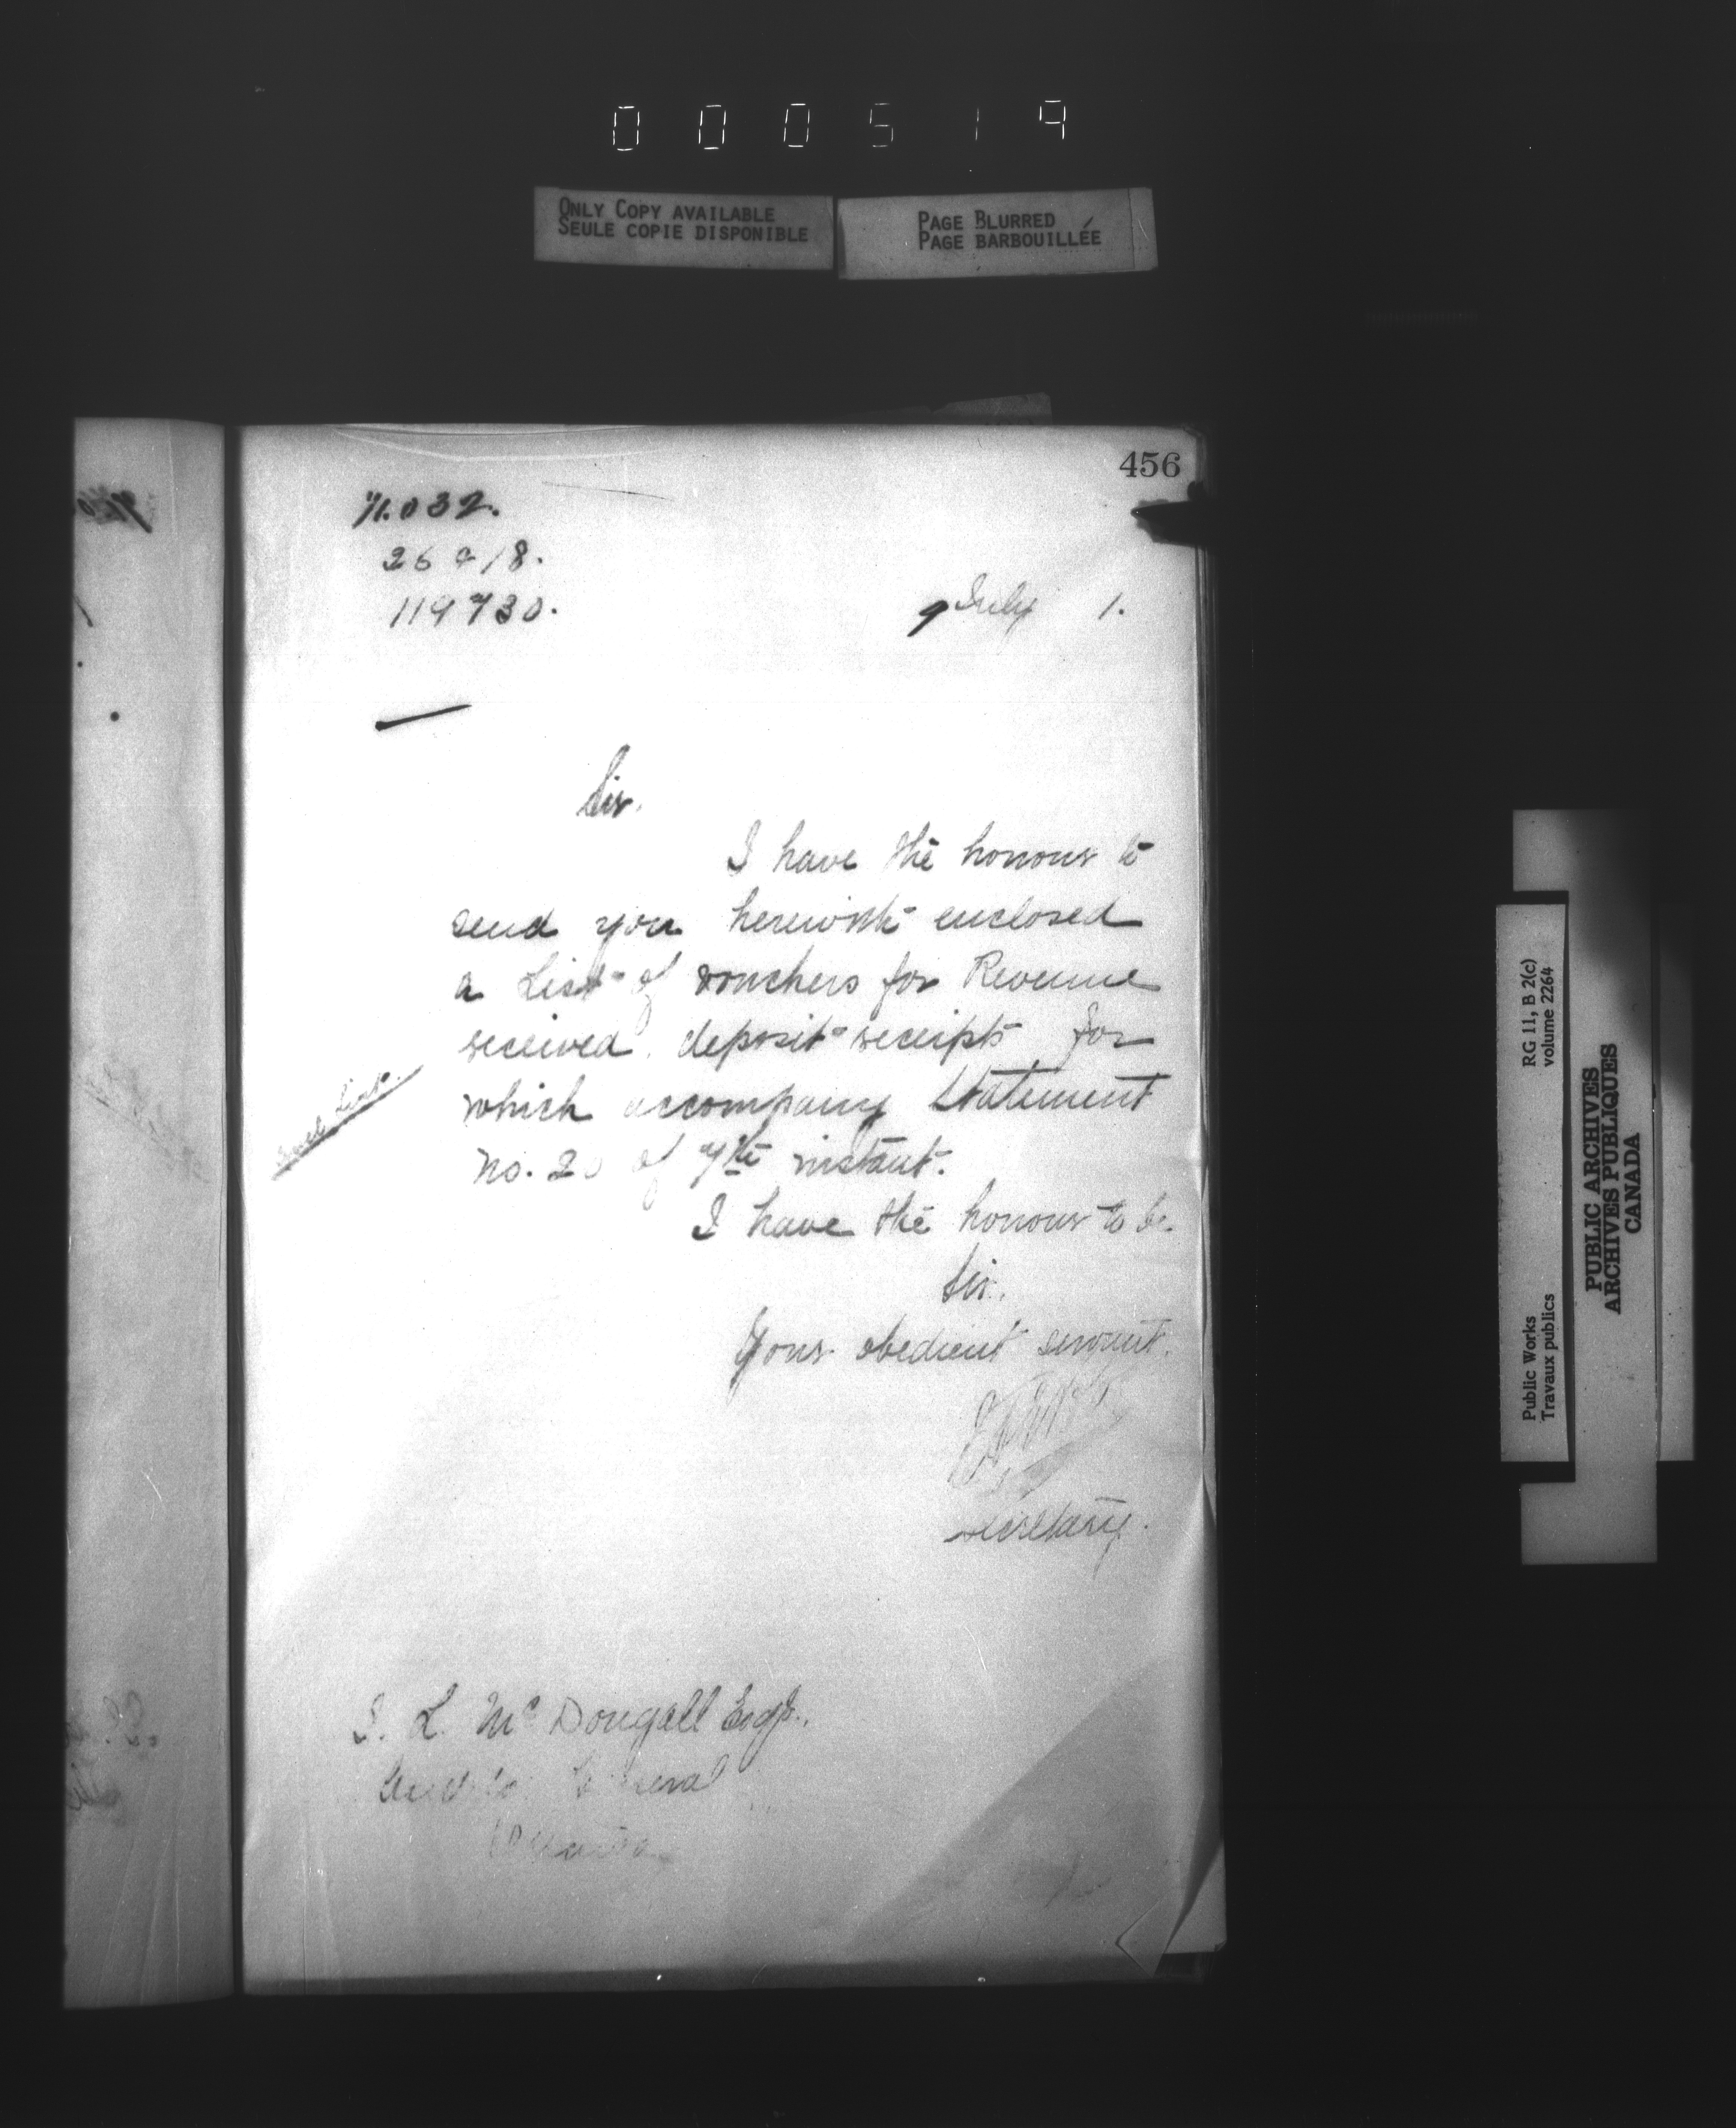 000519
ONLY COPY AVAILABLE
SEULE COPIE DISPONIBLE
PAGE BLURRED
PAGE BARBOUILLÉE
456
71.032.
119730.
9 July 1.
Sir,
I have the honour to
send you herewith enclosed
a List of vouchers for Revenue
received, deposit receipts for
which accompany Statement
No. 20 of 7th instant.
I have the honour to be
Sir,
Your obedient servant.
Secretary.
J. L. McDougall Esqr.,
Auditor General
Ottawa
RG 11, B 2(c)
volume 2264
Public Works
Travaux publics
PUBLIC ARCHIVES
ARCHIVES PUBLIQUES
CANADA